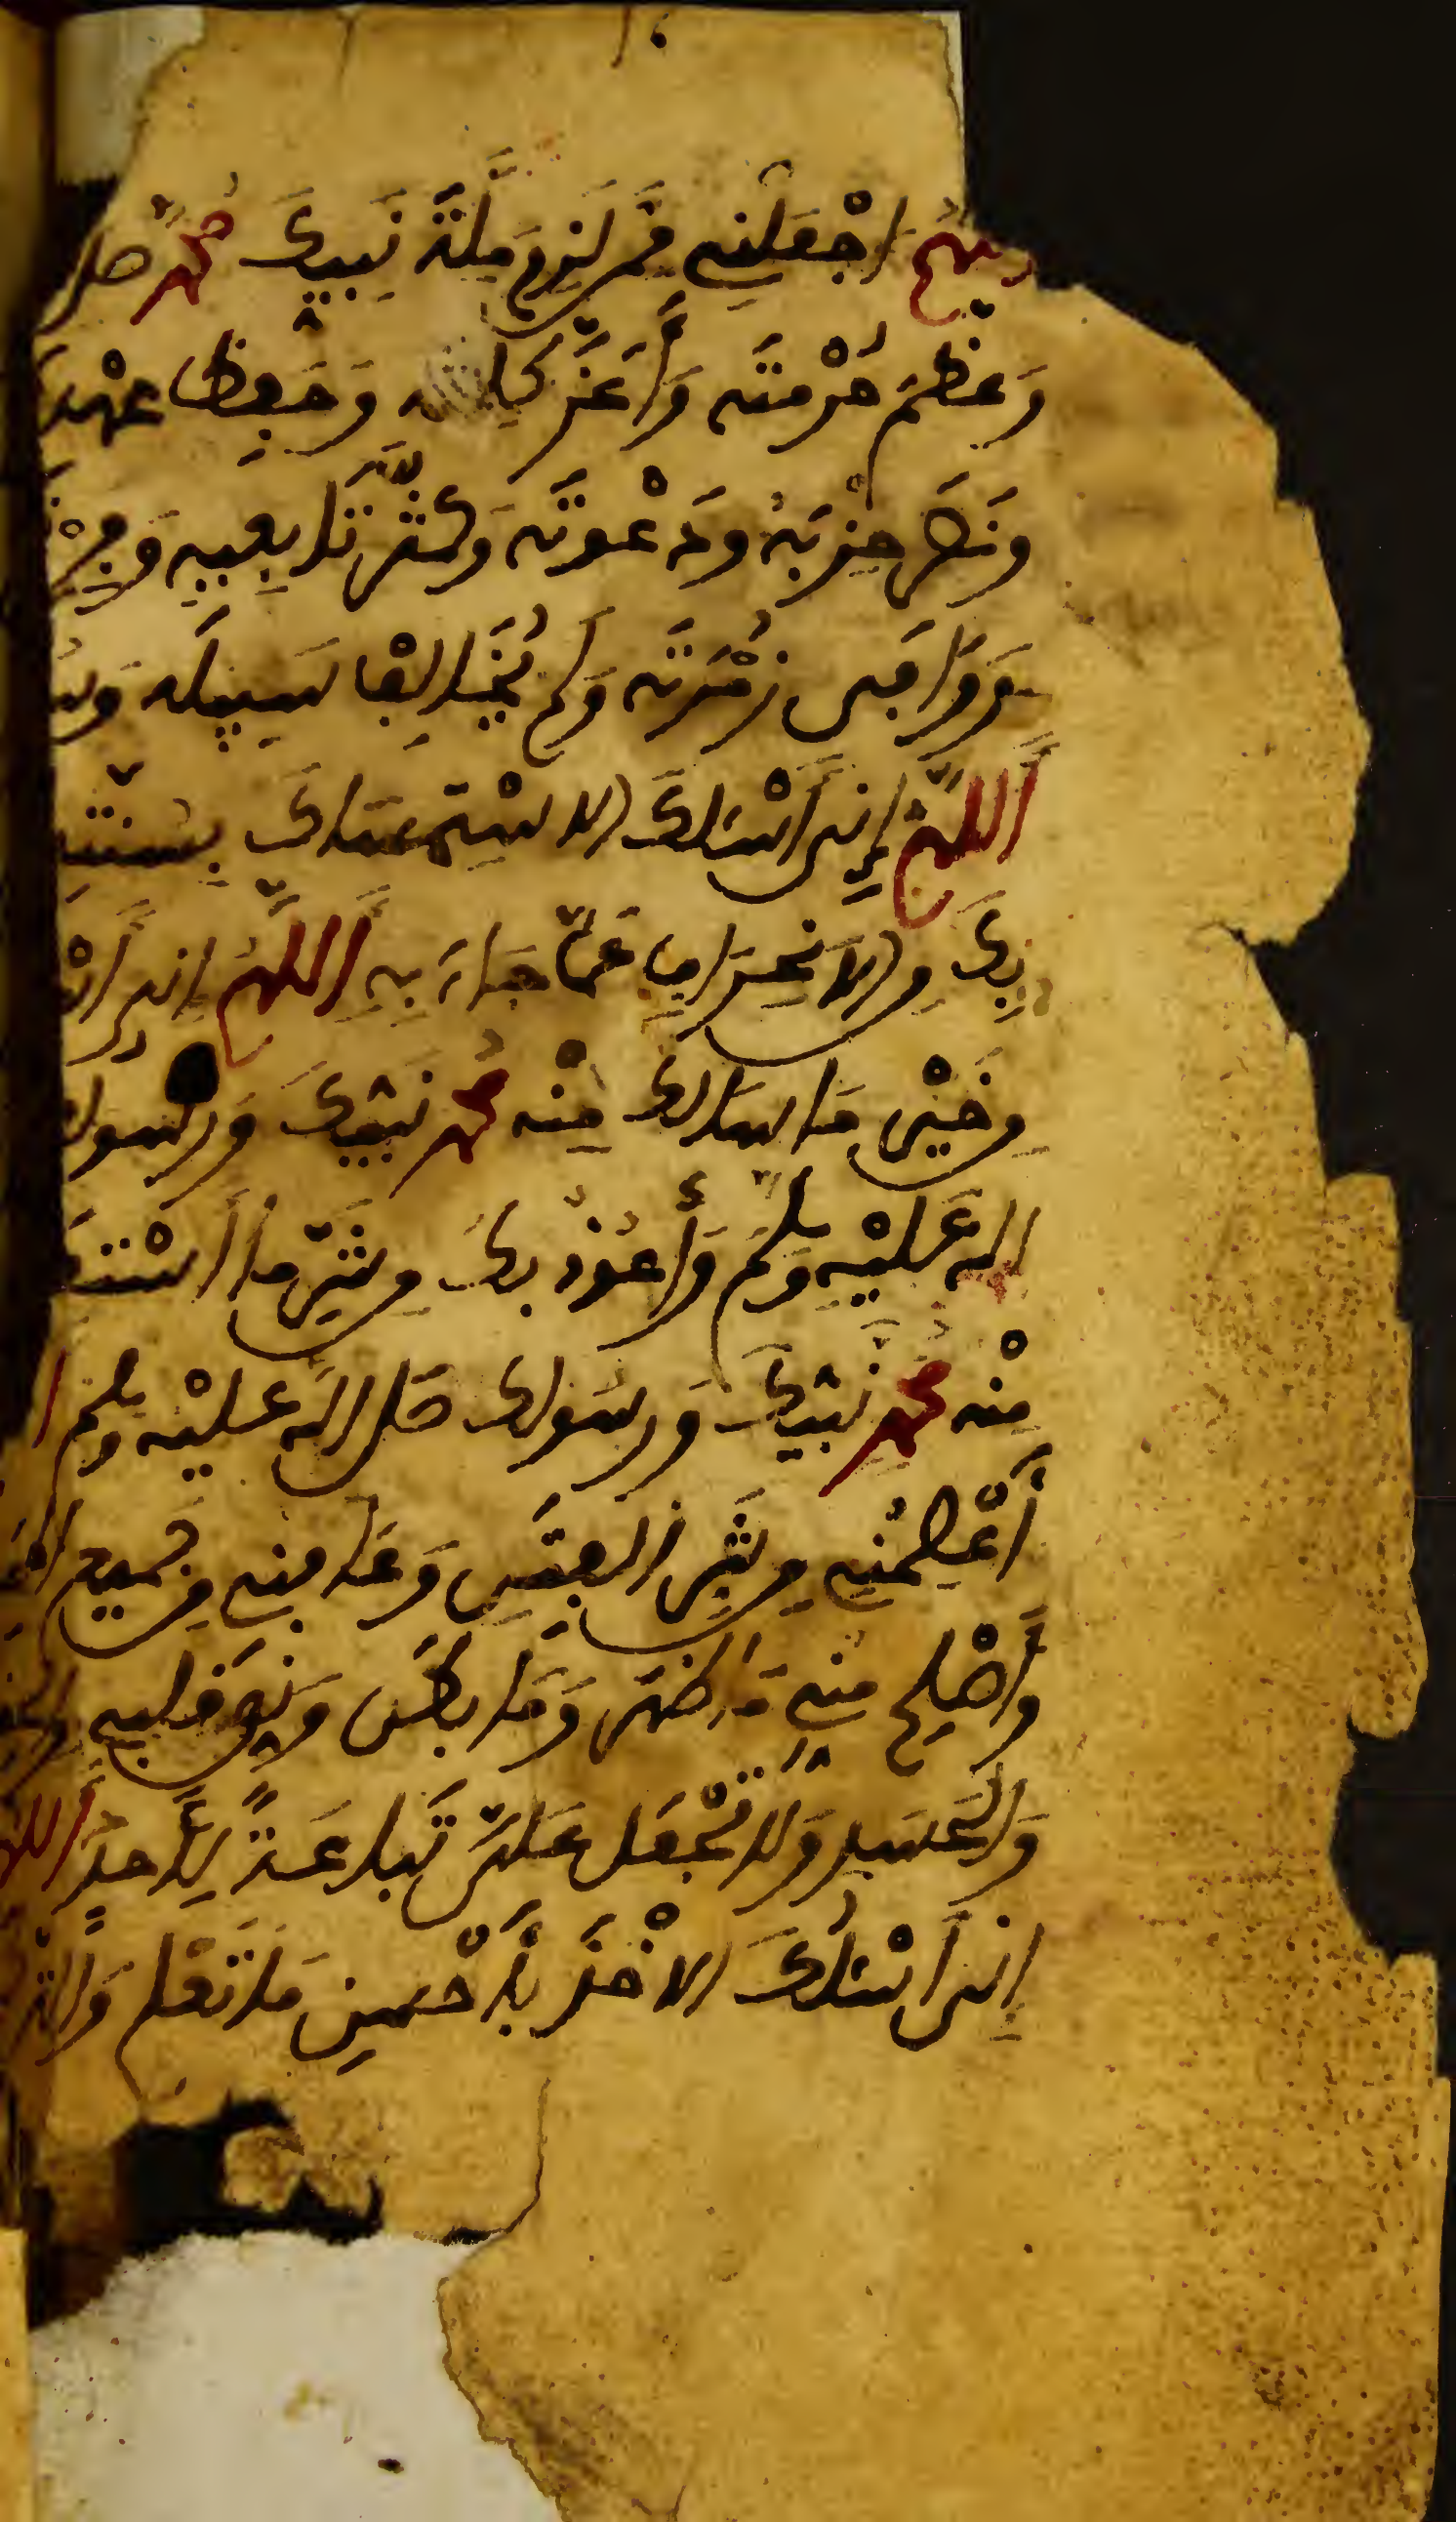 اللهم اجْعَلْنِي مِمَّن لَزِمَ مِلَّةَ نَبِيِّكَ مُحَمَّدٍ صلى
وَعَظَّمَ حُرْمَتَهُ وَأَعَزَّ كَلِمَتَهُ وَحَفِظَ عَهْدَهُ
وَنَصَرَ حِزْبَهُ وَدَعْوَتَهُ وَكَثَّرَ تَابِعِيهِ
وَوَافَى زُمْرَتَهُ وَلَمْ يُخَالِفْ سَبِيلَهُ
اَللَّهُمَّ إِنِّي أَسْئَلُكَ الاسْتِمْسَاكَ بِسُنَّتِهِ
بِكَ مِنَ الانْحِرَافِ عَمَّا جَاءَ بِهِ اَللَّهُمَّ إِنِّي
مِنْ خَيْرِ مَا سَأَلَكَ مِنْهُ مُحَمَّدٌ نَبِيُّكَ وَرَسُولُكَ
الله عَلَيْهِ وَسَلَّمَ وَأَعُوذُ بِكَ مِن شَرِّ مَا اسْتَعَ
مِنْهُ مُحَمَّدٌ نَبِيُّكَ وَرَسُولُكَ صَلَّى اللهُ عَلَيْهِ وَسَلَّمَ
اَعْصِمْنِي مِن شَرِّ الْفِتَنِ وَعَافِنِي مِن جَمِيعِ
وَأَصْلِحْ مِنِّي مَا ظَهَرَ وَمَا بَطَنَ وَنَقِّ قَلْبِي
وَالْحَسَدِ وَلَا تَجْعَلْ عَلَيَّ تِبَاعَةً لِأَحَدٍ اَللَّهُمَّ
إِنِّي أَسْئَلُكَ الاخْذَ بِأَحْسَنِ مَا تَعْلَمُ